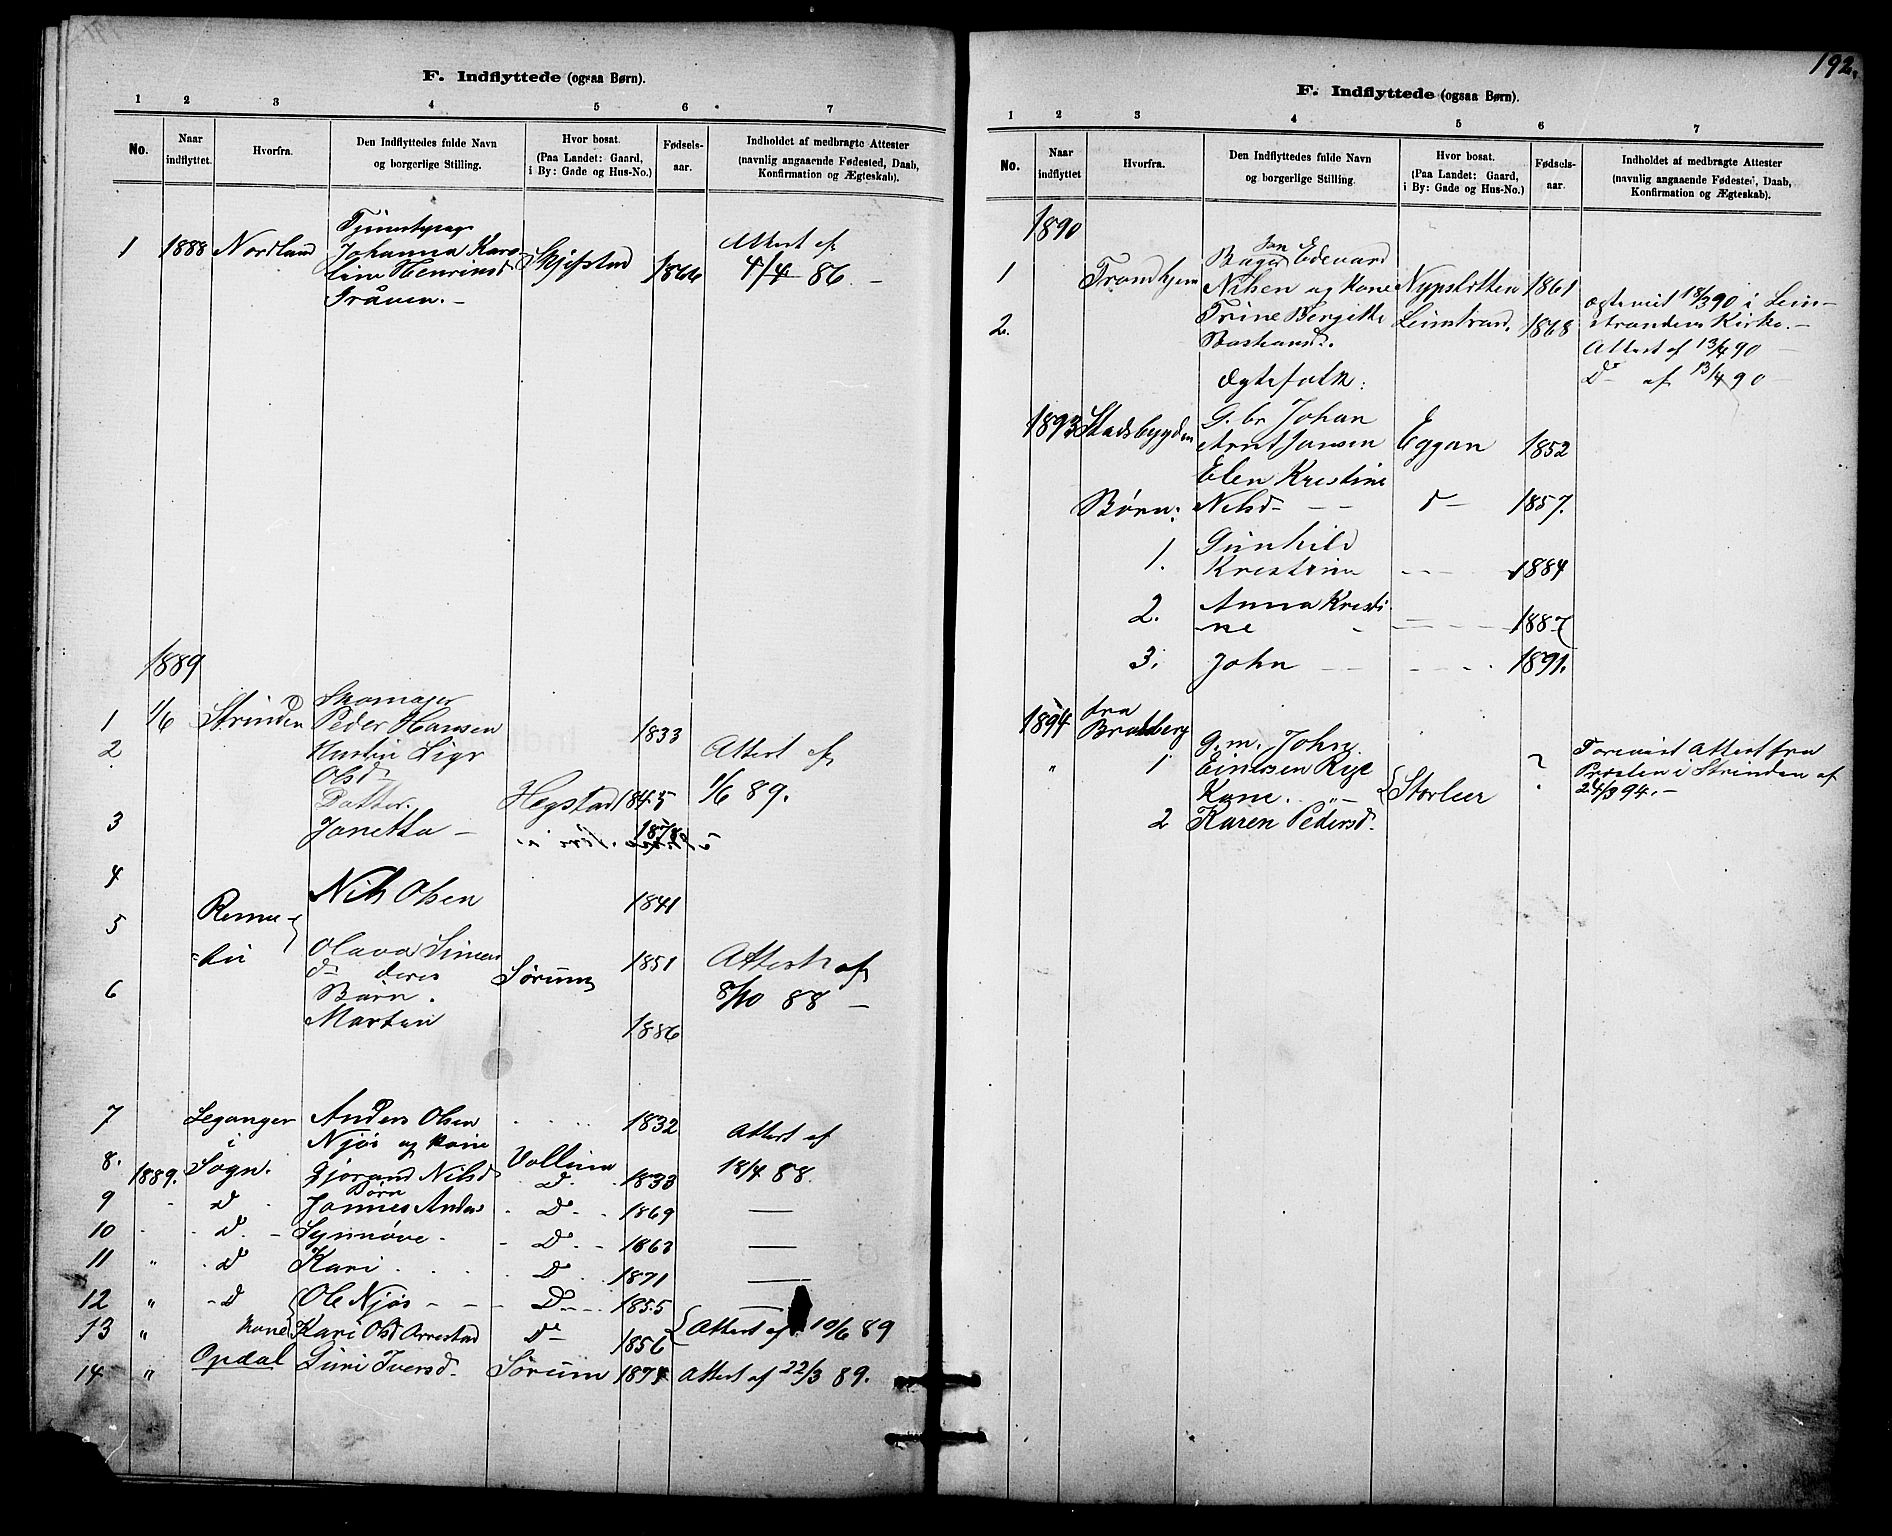 F. Indflyttede (ogsaa Børn).
1 2 3 4 5 6 7
No. Naar indflyttet. Hvorfra. Den Indflyttedes fulde Navn og borgerlige Stilling. Hvor bosat. (Paa Landet: Gaard, i By: Gade og Hus-No.) Fødselsaar. Indholdet af medbragte Attester (navnlig angaaende Fødested, Daab, Konfirmation og Ægteskab).
Tjenestepige
1 1888 Nordland Johanna Karo- Skjefstad 1866 Attest af
line Henriksd 4/4 86. -
Gråven. -
1889
Skomager
1 1/6 Strinden Peder Hansen 1833
2 Ligr Attest af
Olsd
Datter. Hegstad 1845 1/6 89.
3 Janetta - 1878
4 Nils Olsen 1841
5 Renne-
bu Olava Simens Sørum 1851 Attest af
6 d- deres 8/10 88 -
Børn.
Morten 1886
7 Leganger Anders Olsen 1832 Attest af
i Njøs og Kone
8. 1889. Sogn. Gjorand Nilsd Vollum D. 1833 18/4 88.
Børn
9 - D Jannes Anders - D. - 1869 —
10 - D. - Synnøve - - D. - 1863 —
11 " D Kari D 1871 —
12 " - D Ole Njøs - - - D - 1855 —
13 " Kone Kari Olsd Orrestad Do 1856 Attest af 10/6 89
14 " Opdal Suri Iversd. Sørum 1874 Attest af 22/3 89.
192.
F. Indflyttede (ogsaa Børn).
1 2 3 4 5 6 7
No. Naar indflyttet Hvorfra. Den Indflyttedes fulde Navn og borgerlige Stilling. Hvor bosat. (Paa Landet: Gaard, i By: Gade og Hus-No.) Fødselsaar. Indholdet af medbragte Attester (navnlig angaaende Fødested, Daab, Konfirmation og Ægteskab).
1890
Jan
Bager Edevard
1 Trondhjem Nilsen og Kone Nypslètten 1861 ægteviet 18/3 90 i Lein-
2. Trine Bergitte Leinstrand. 1868 strandens Kirke. -
Attest af 13/4 90 -
Do af 13/4 90 -
Ægtefolk:
1893 Stadsbygden G. br Johan
Arnt Jansen Eggan 1852
Elen Kristine
Børn: Nilsd - - d- 1857.
1. Gunhild
Kristine - - - 1884
2. Anna Kristi-
ne - - - 1887
3. John - - - - - 1891.
1894 fra
Bratsberg g. m. John
" 1 Einersen Rye ? Forevist Attest fra
Kone. "- Storleer Præsten i Strinden af
24/3 94. -
2 Karen Pedersd.